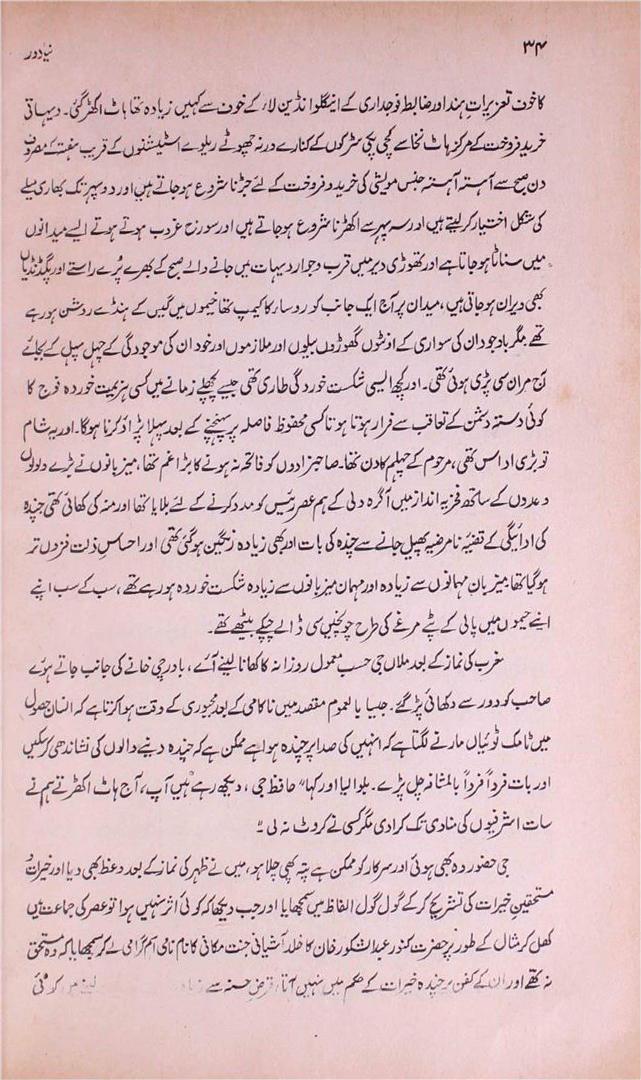 ۳۴
نیا دور
کا خون تعزیراتِ ہند اور ضابطہ فوجداری کے اینگلو انڈین لاء کے خوف سے کہیں زیادہ تھا ہاٹ اکھڑ گئی۔ دیہاتی
خرید فروخت کے مرکز ہاٹ نخاسے کچی پکی سڑکوں کے کنارے ورنہ چھوٹے ریلوے اسٹیشنوں کے قریب ہفتے کے مصروف
دن صبح سے آہستہ آہستہ جنس مویشی کی خرید و فروخت کے لئے جڑنا شروع ہو جاتے ہیں اور دوپہر تک بھاری میلے
کی شکل اختیار کر لیتے ہیں اور سہ پہر سے اکھڑنا شروع ہو جاتے ہیں اور سورج غروب ہوتے ہوتے ایسے میدانوں
میں سناٹا ہو جاتا ہے اور تھوڑی دیر میں قرب و جوار دیہات میں جانے والے صبح کے بھرے پُرے راستے اور پگڈنڈیاں
بھی ویران ہو جاتی ہیں، میدان پر آج ایک جانب کو روسار کا کیمپ تھا خیموں میں گیس کے ہنڈے روشن ہو رہے
تھے مگر باوجود ان کی سواری کے اونٹوں گھوڑوں بیلوں اور ملازموں اور خود ان کی موجودگی کے چہل پہل کے بجائے
آج مران سی پڑی ہوئی تھی۔ اور کچھ ایسی شکست خوردگی طاری تھی جیسے پچھلے زمانے میں کسی ہزیمت خوردہ فوج کا
کوئی دستہ دشمن کے تعاقب سے فرار ہوتا ہوتا کسی محفوظ فاصلہ پر پہنچنے کے بعد پہلا پڑاؤ کرنا ہوگا۔ اور یہ شام
تو بڑی اداس تھی، مرحوم کے چہلم کا دن تھا۔ صاحبزادوں کو فاتحہ نہ ہونے کا بڑا غم تھا، میزبانوں نے بڑے ولولوں
وعدوں کے ساتھ فخریہ انداز میں آگرہ دلی کے ہم عصر رئیس کو مدد کرنے کے لئے بلایا تھا اور منہ کی کھائی تھی چندہ
کی ادائیگی کے قضیۂ نامرضیہ پھیل جانے سے چندہ کی بات اور بھی زیادہ رنگین ہو گئی تھی اور احساسِ ذلت فزوں تر
ہو گیا تھا میزبان مہمانوں سے زیادہ اور مہمان میزبانوں سے زیادہ شکست خوردہ ہو رہے تھے، سب کے سب اپنے
اپنے خیموں میں پالی کے پٹے مرغے کی طرح چونچیں سی ڈالے چپکے بیٹھے تھے۔
مغرب کی نماز کے بعد ملاں جی حسب معمول روزانہ کا کھانا لینے آئے، باورچی خانے کی جانب جاتے ہوئے
صاحب کو دور سے دکھائی پڑ گئے۔ جیسا بالعموم مقصد میں ناکامی کے بعد مجبوری کے وقت ہوا کرتا ہے کہ انسان حصول
میں ٹامک ٹوئیاں مارنے لگتا ہے کہ انہیں کی صدا پر چندہ ہوا ہے ممکن ہے کہ چندہ دینے والوں کی نشاندہی کر سکیں
اور بات فرداً فرداً بالمشافہ چل پڑے۔ بلوا لیا اور کہا" حافظ جی، دیکھ رہے ہیں آپ، آج ہاٹ اکھڑتے ہم نے
سات اشرفیوں کی منادی تک کرا دی مگر کسی نے کروٹ نہ لی۔"
جی حضور وہ بھی ہوئی اور سرکار کو ممکن ہے پتہ بھی چلا ہو، میں نے ظہر کی نماز کے بعد وعظ بھی دیا اور خیرات و
مستحقینِ خیرات کی تشریح کر کے گول گول الفاظ میں سمجھایا اور جب دیکھا کہ کوئی اثر نہیں ہوا تو عصر کی جماعت میں
کھل کر مثال کے طور پر حضرت کنور عبدالشکور خان کا خلد آشیانی جنت مکانی کا نام نامی اسم گرامی لے کر سمجھایا کہ وہ مستحق
نہ تھے اور ان کے کفن پر چندہ خیرات کے حکم میں نہیں آتا، قرضِ حسنہ سے زیادہ لینے میں کوئی